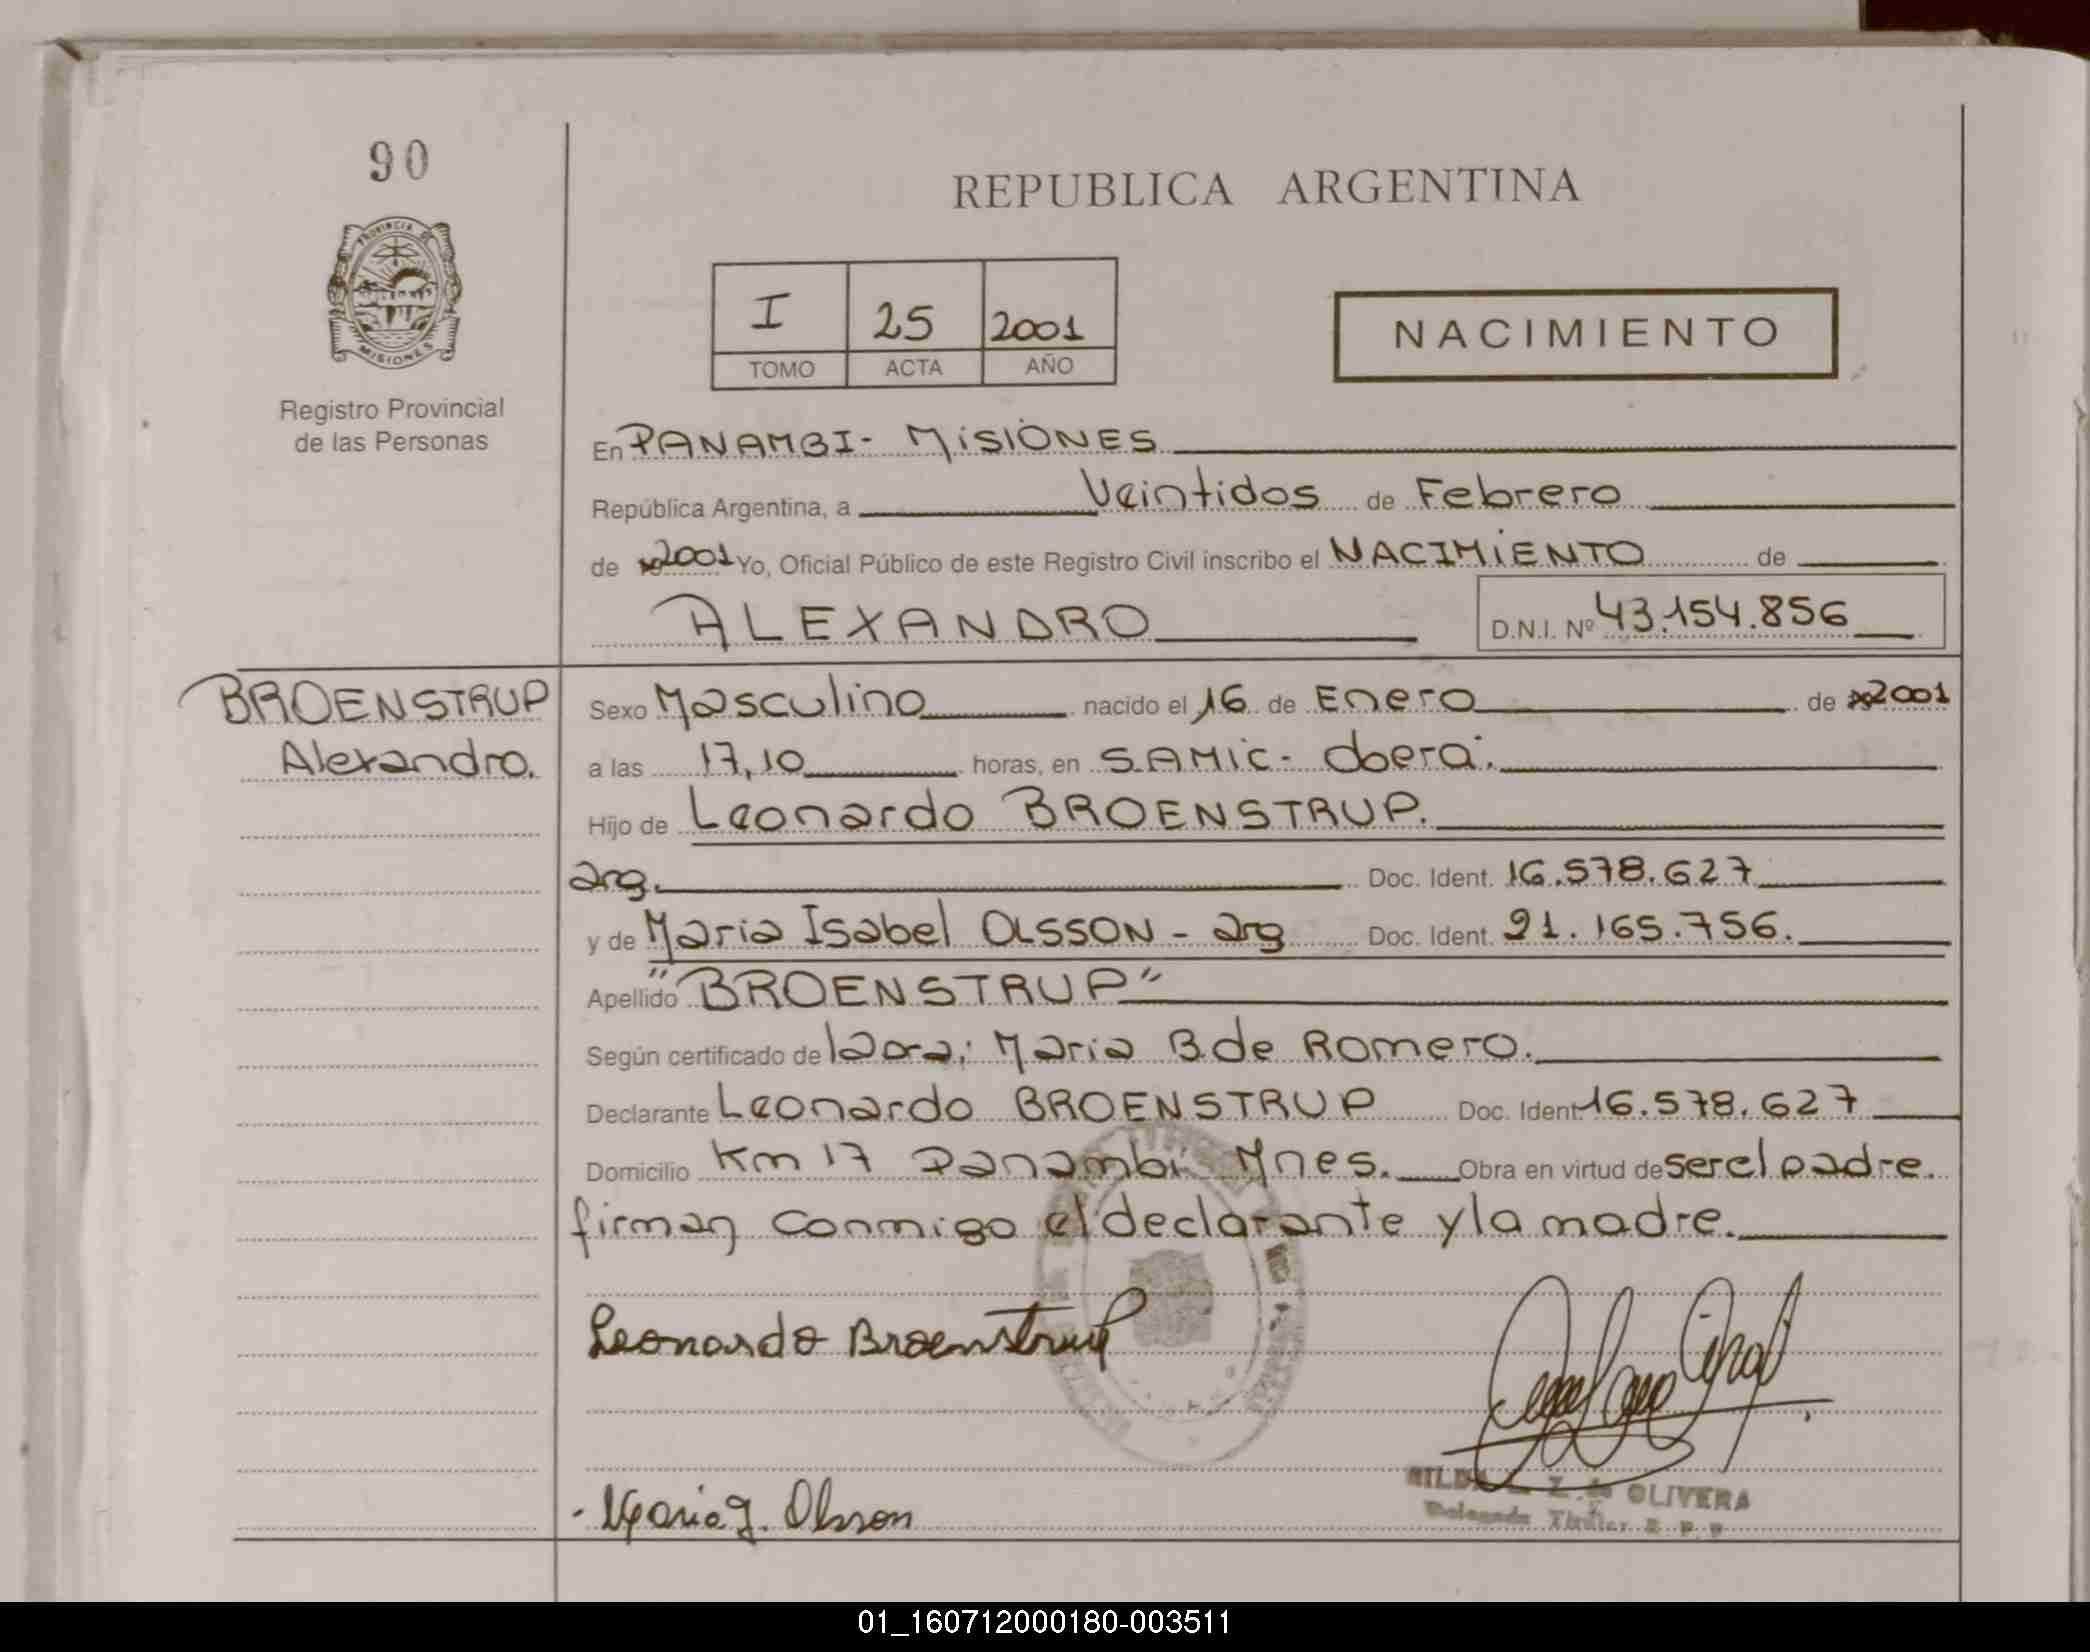 90
PROVINCIA DE
MISIONES
Registro Provincial
de las Personas
REPUBLICA ARGENTINA
I 25 2001
TOMO ACTA AÑO
NACIMIENTO
En PANAMBI - MISIONES
República Argentina, a Veintidos de Febrero
de 2001 Yo, Oficial Público de este Registro Civil inscribo el NACIMIENTO de
ALEXANDRO D.N.I. Nº 43.154.856
BROENSTRUP
Alexandro.
Sexo Masculino nacido el 16 de Enero de 2001
a las 17,10 horas, en S.AMIC - Obera.
Hijo de Leonardo BROENSTRUP.
arg. Doc. Ident. 16.578.627
y de Maria Isabel OLSSON - arg Doc. Ident. 21.165.756.
Apellido "BROENSTRUP"
Según certificado de Maria B. de Romero.
Declarante Leonardo BROENSTRUP Doc. Ident 16.578.627
Domicilio Km 17 Panambi Mnes. Obra en virtud de ser el padre.
firman conmigo el declarante y la madre.
Leonardo Broenstrup
Maria I. Olsson
Z. de OLIVERA
Delegada Titular R. P. P
01_160712000180-003511